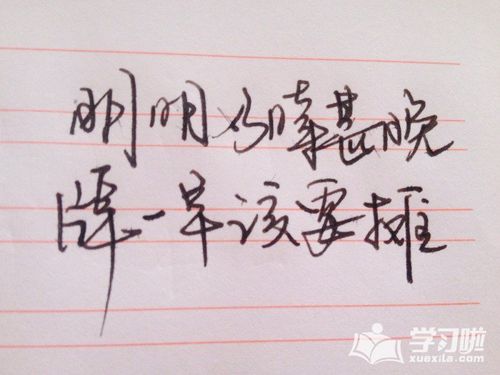 明明甚晚
牌一早该要摊
学习啦
xuexila.com